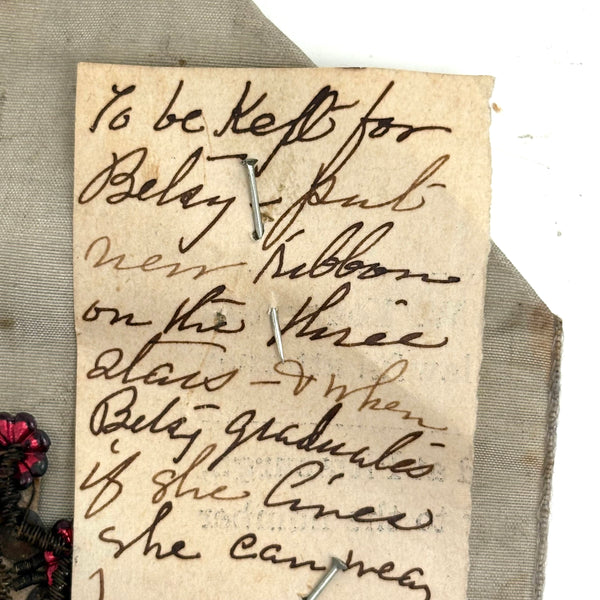 To be Kept for
Betsy - put
new ribbon
on the three
stars - & when
Betsy graduates
if she lives
she can wear